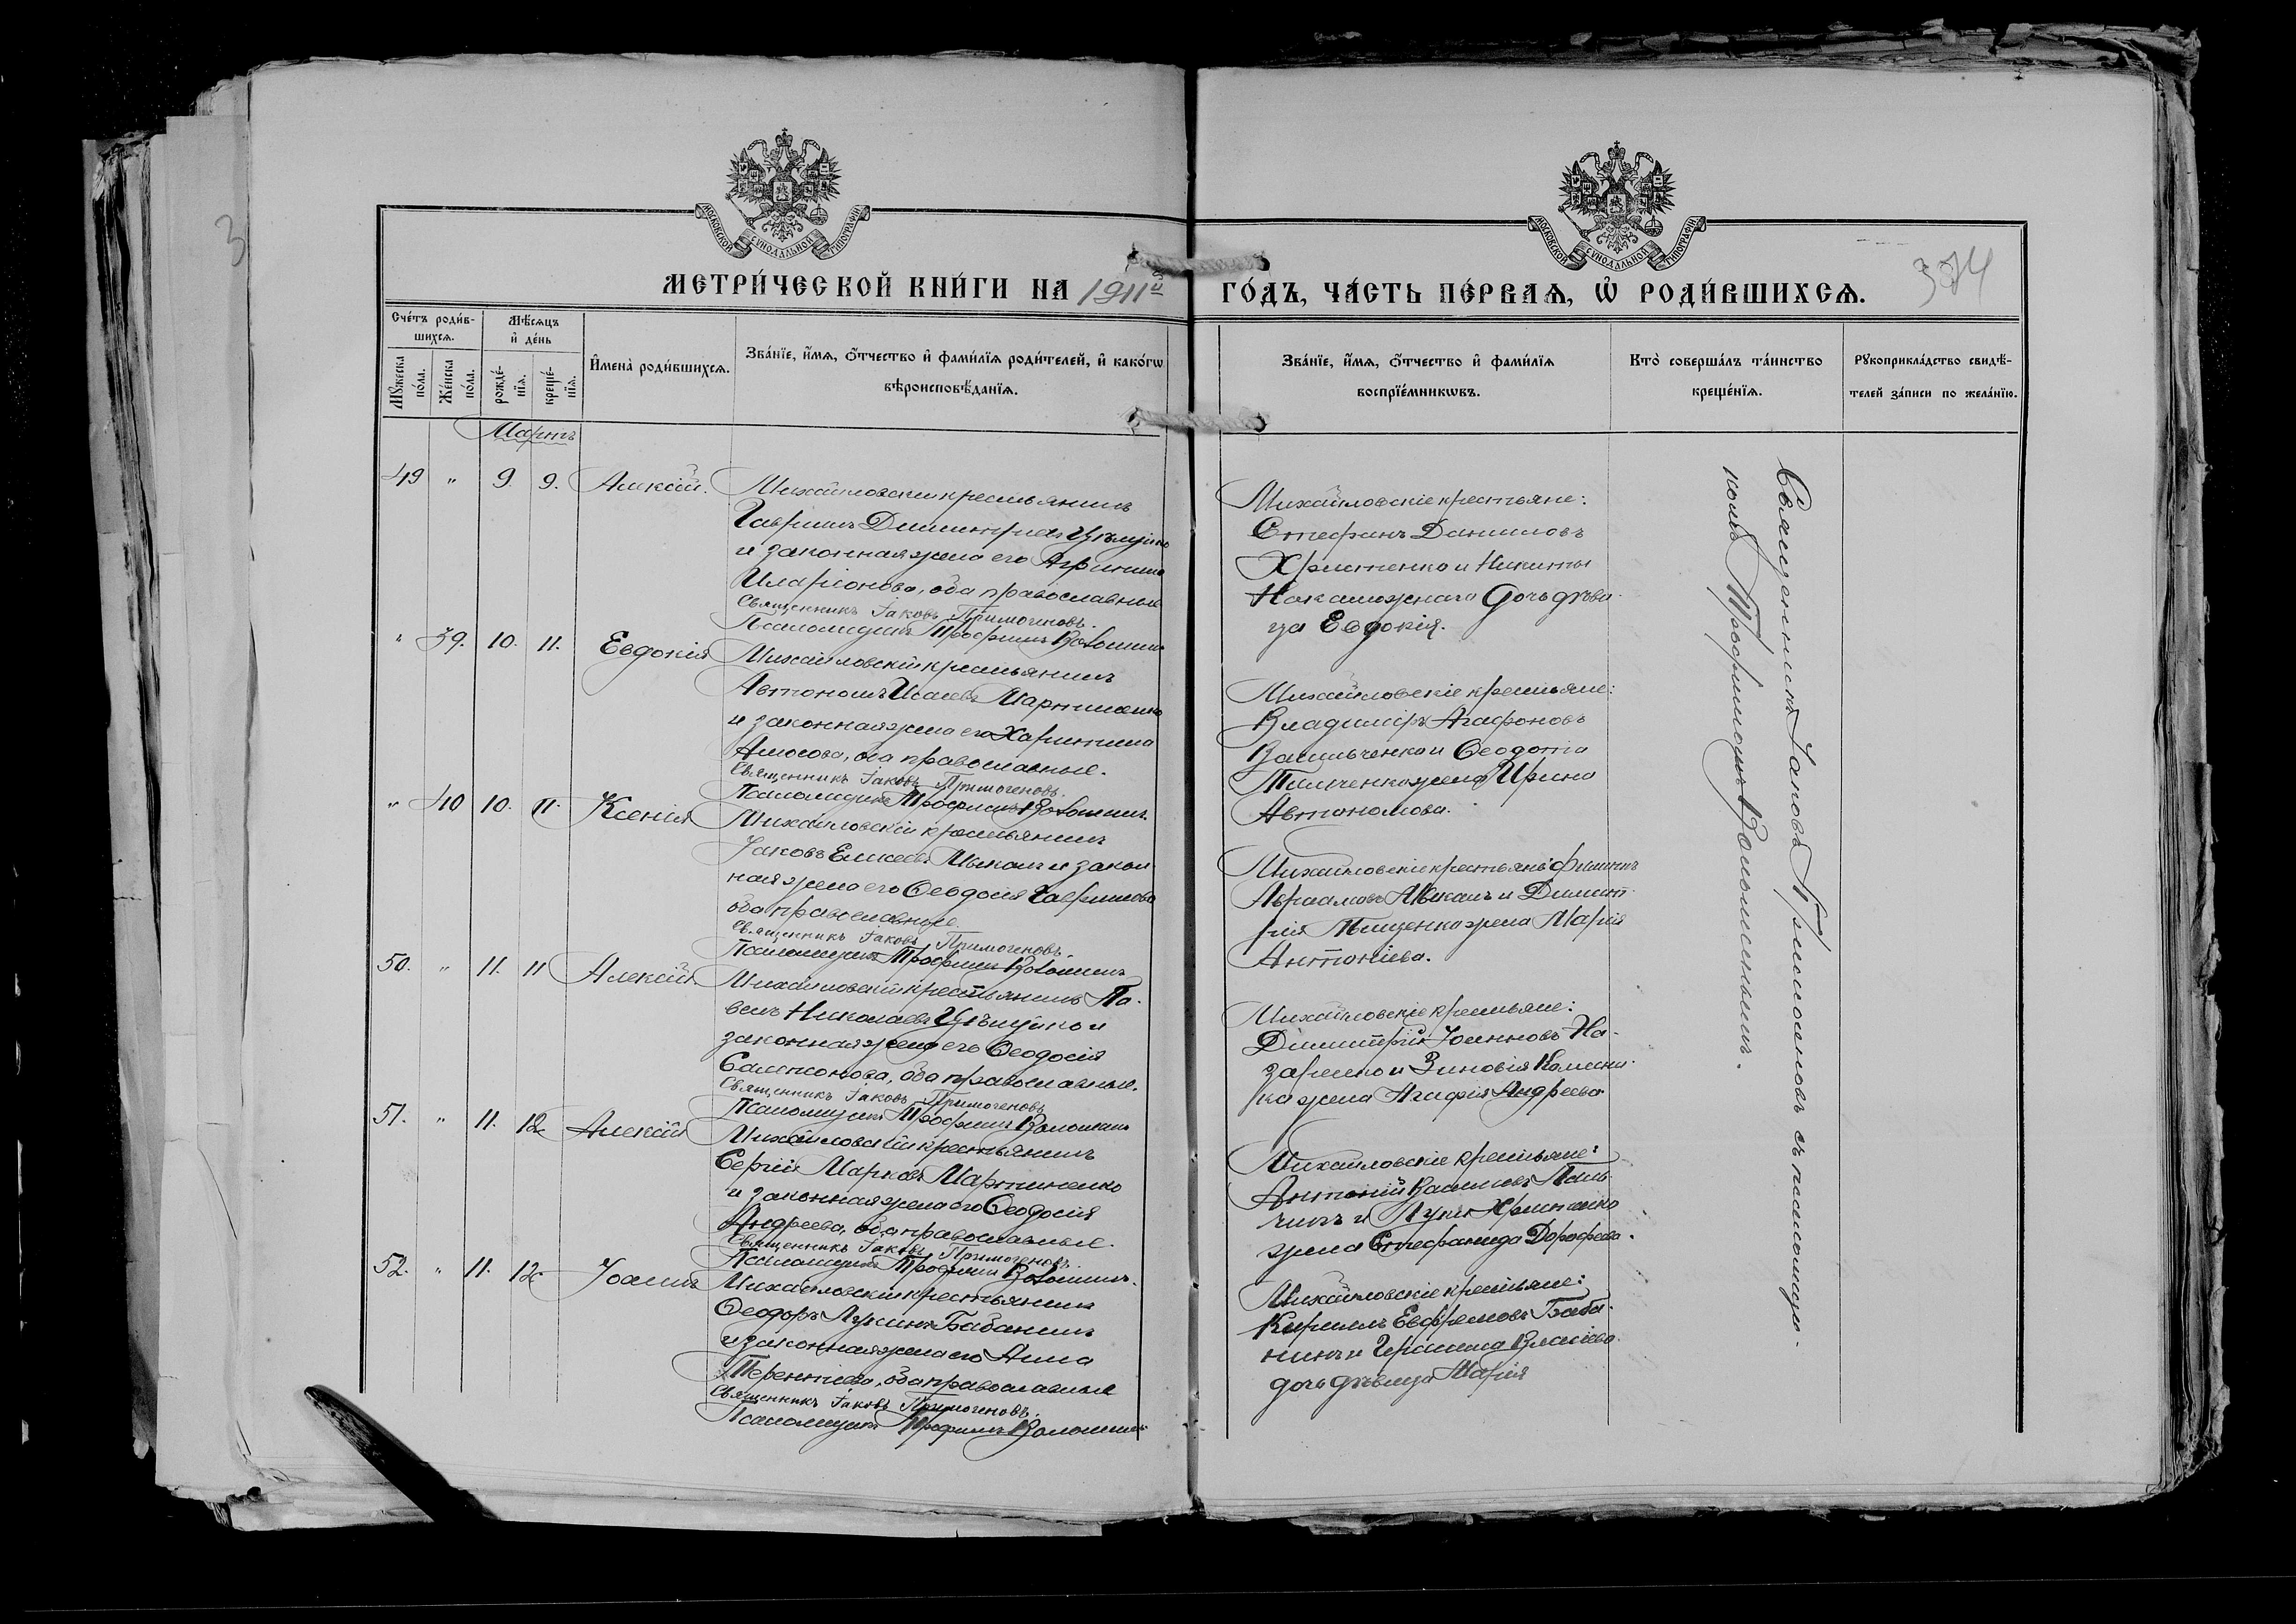 МОСКОВСКОЙ СѴНОДАЛЬНОЙ ТИПОГРАФІИ
МОСКОВСКОЙ СѴНОДАЛЬНОЙ ТИПОГРАФІИ
МЕТРИ́ЧЕСКОЙ КНИ́ГИ НА 1911й ГО́ДЪ, ЧА́СТЬ ПЕ́РВАѦ, Ѡ҆ РОДИ́ВШИХСѦ.
374
Сче́тъ роди́в-
шихсѧ.
Мѣ́сѧцъ
и҆ де́нь
Мꙋ́жеска
по́ла.
Же́нска
по́ла.
рожде́-
нїѧ.
креще́-
нїѧ.
И҆мена̀ роди́вшихсѧ.
Зва́нїе, и҆́мѧ, ѻ҆́тчество и҆ фами́лїѧ роди́телей, и҆ како́гѡ
вѣроисповѣ́данїѧ.
Зва́нїе, и҆́мѧ, ѻ҆́тчество и҆ фами́лїѧ
воспрїе́мникѡвъ.
Кто̀ соверша́лъ та́инство
креще́нїѧ.
Рꙋкоприкла́дство свидѣ́-
телей за́писи по жела́нїю.
Мартъ
49 " 9. 9. Алексій.
Михайловскій крестьянинъ
Гавріилъ Димитріевъ
и законная жена его Агрипина
Иларіонова, оба православные
Священникъ Іаковъ Примогеновъ.
Псаломщикъ Трофимъ Волошинъ
Михайловскіе крестьяне:
Стефанъ Даниловъ
Христенко и Никиты
дочь дѣви-
ца Евдокія.
" 39. 10. 11. Евдокія
Михайловскій крестьянинъ
Автономъ Исаевъ Мартиненко
и законная жена его Харитина
Амосова, оба православные.
Священникъ Іаковъ Примогеновъ.
Псаломщикъ Трофимъ Волошинъ
Михайловскіе крестьяне:
Владиміръ Агафоновъ
Васильченко и Ѳеодота
жена Ирина
Автономова.
" 40 10. 11. Ксенія
Михайловскій крестьянинъ
Іаковъ и закон
ная жена его Ѳеодосія Гавриилова
оба православные.
Священникъ Іаковъ Примогеновъ.
Псаломщикъ Трофимъ Волошинъ
Михайловскіе крестьяне: Филиппъ
Авраамовъ и Димит-
рія жена Марія
Антоніева.
50. " 11. 11 Алексій
Михайловскій крестьянинъ Па-
велъ Николаевъ и
законная жена его Ѳеодосія
Самсонова, оба православные.
Священникъ Іаковъ Примогеновъ
Псаломщикъ Трофимъ Волошинъ
Михайловскіе крестьяне:
Димитрій Іоанновъ На-
заренко и Зиновія
жена Агафія Андреева
51. " 11. 12 Алексій
Михайловскій крестьянинъ
Сергій Марковъ Мартиненко
и законная жена его Ѳеодосія
Андреева, оба православные.
Священникъ Іаковъ Примогеновъ.
Псаломщикъ Трофимъ Волошинъ.
Михайловскіе крестьяне:
Антоній Василіевъ
и Луки Христенко
жена Стефанида Дорофеева.
52. " 11. 12 Іоаннъ
Михайловскій крестьянинъ
Ѳеодоръ Лукинъ Бабанинъ
и законная жена его Анна
Терентіева, оба православные
Священникъ Іаковъ Примогеновъ.
Псаломщикъ Трофимъ Волошинъ
Михайловскіе крестьяне:
Кириллъ Евфремовъ Баба-
нинъ и
дочь дѣвица Марія
Священникъ Іаковъ Примогеновъ съ псаломщи-
комъ Трофимомъ Волошинымъ.